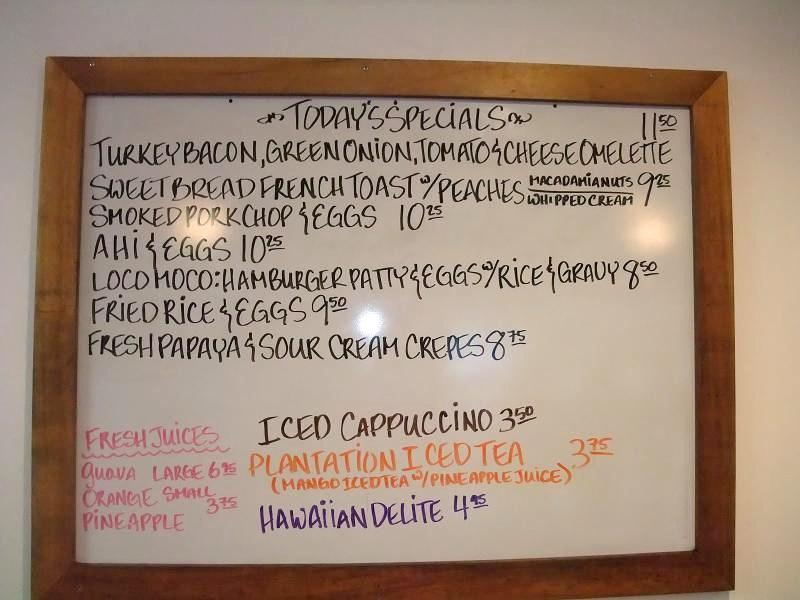 TODAY'S SPECIALS
11 50
TURKEY BACON, GREEN ONION, TOMATO & CHEESE OMELETTE
SWEET BREAD FRENCH TOAST w/ PEACHES MACADAMIA NUTS WHIPPED CREAM 9 25
SMOKED PORK CHOP & EGGS 10 25
AHI & EGGS 10 25
LOCO MOCO: HAMBURGER PATTY & EGGS w/ RICE & GRAVY 8 50
FRIED RICE & EGGS 9 50
FRESH PAPAYA & SOUR CREAM CREPES 8 75
FRESH JUICES
GUAVA LARGE 6 95
ORANGE SMALL 3 75
PINEAPPLE
ICED CAPPUCCINO 3 50
PLANTATION ICED TEA 3 75
(MANGO ICED TEA w/ PINEAPPLE JUICE)
HAWAIIAN DELITE 4 95